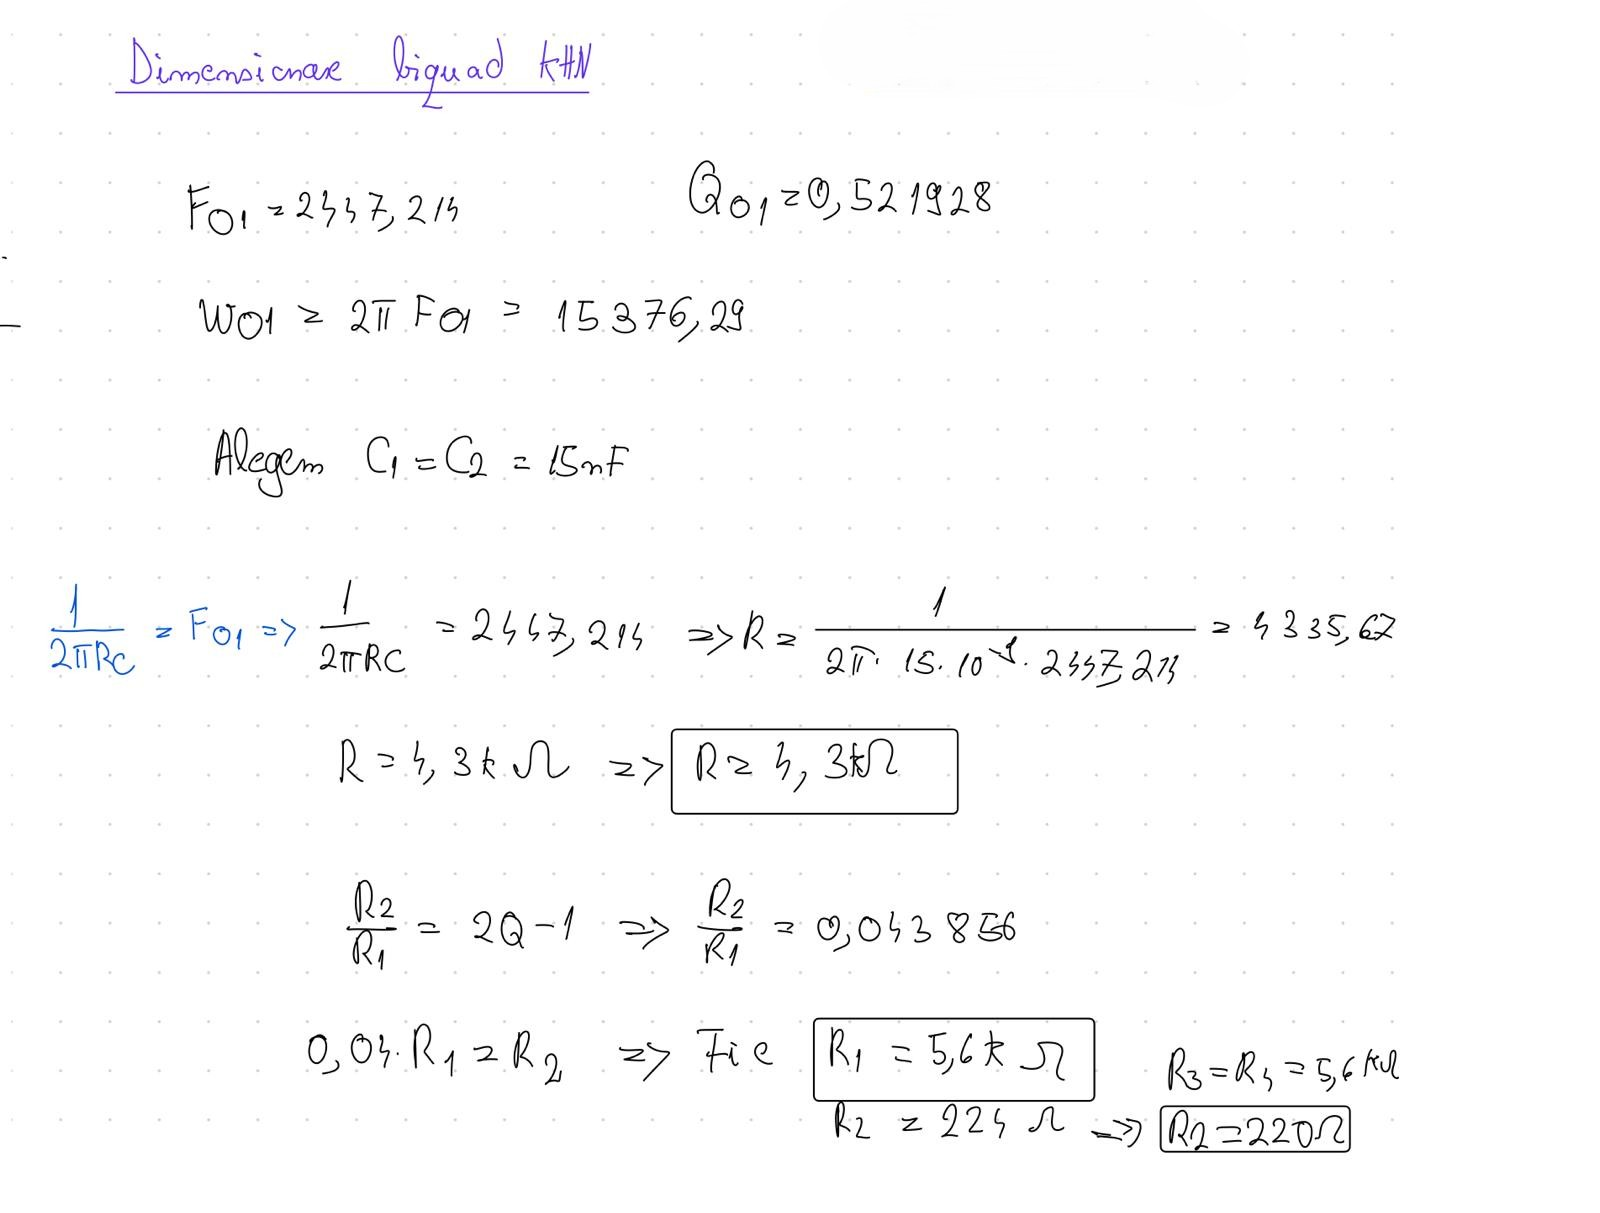 Dimensionare biquad KHN
F01 = 2447,214 Q01 = 0,521928
W01 = 2π F01 = 15376,29
Alegem C1 = C2 = 15nF
1/2πRC = F01 => 1/2πRC = 2447,214 => R = 1/2π · 15 · 10^-9 · 2447,214 = 4335,67
R = 4,3kΩ => R = 4,3kΩ
R2/R1 = 2Q-1 => R2/R1 = 0,043856
0,04·R1 = R2 => Fie R1 = 5,6kΩ R3 = R4 = 5,6kΩ
R2 = 224Ω => R2 = 220Ω